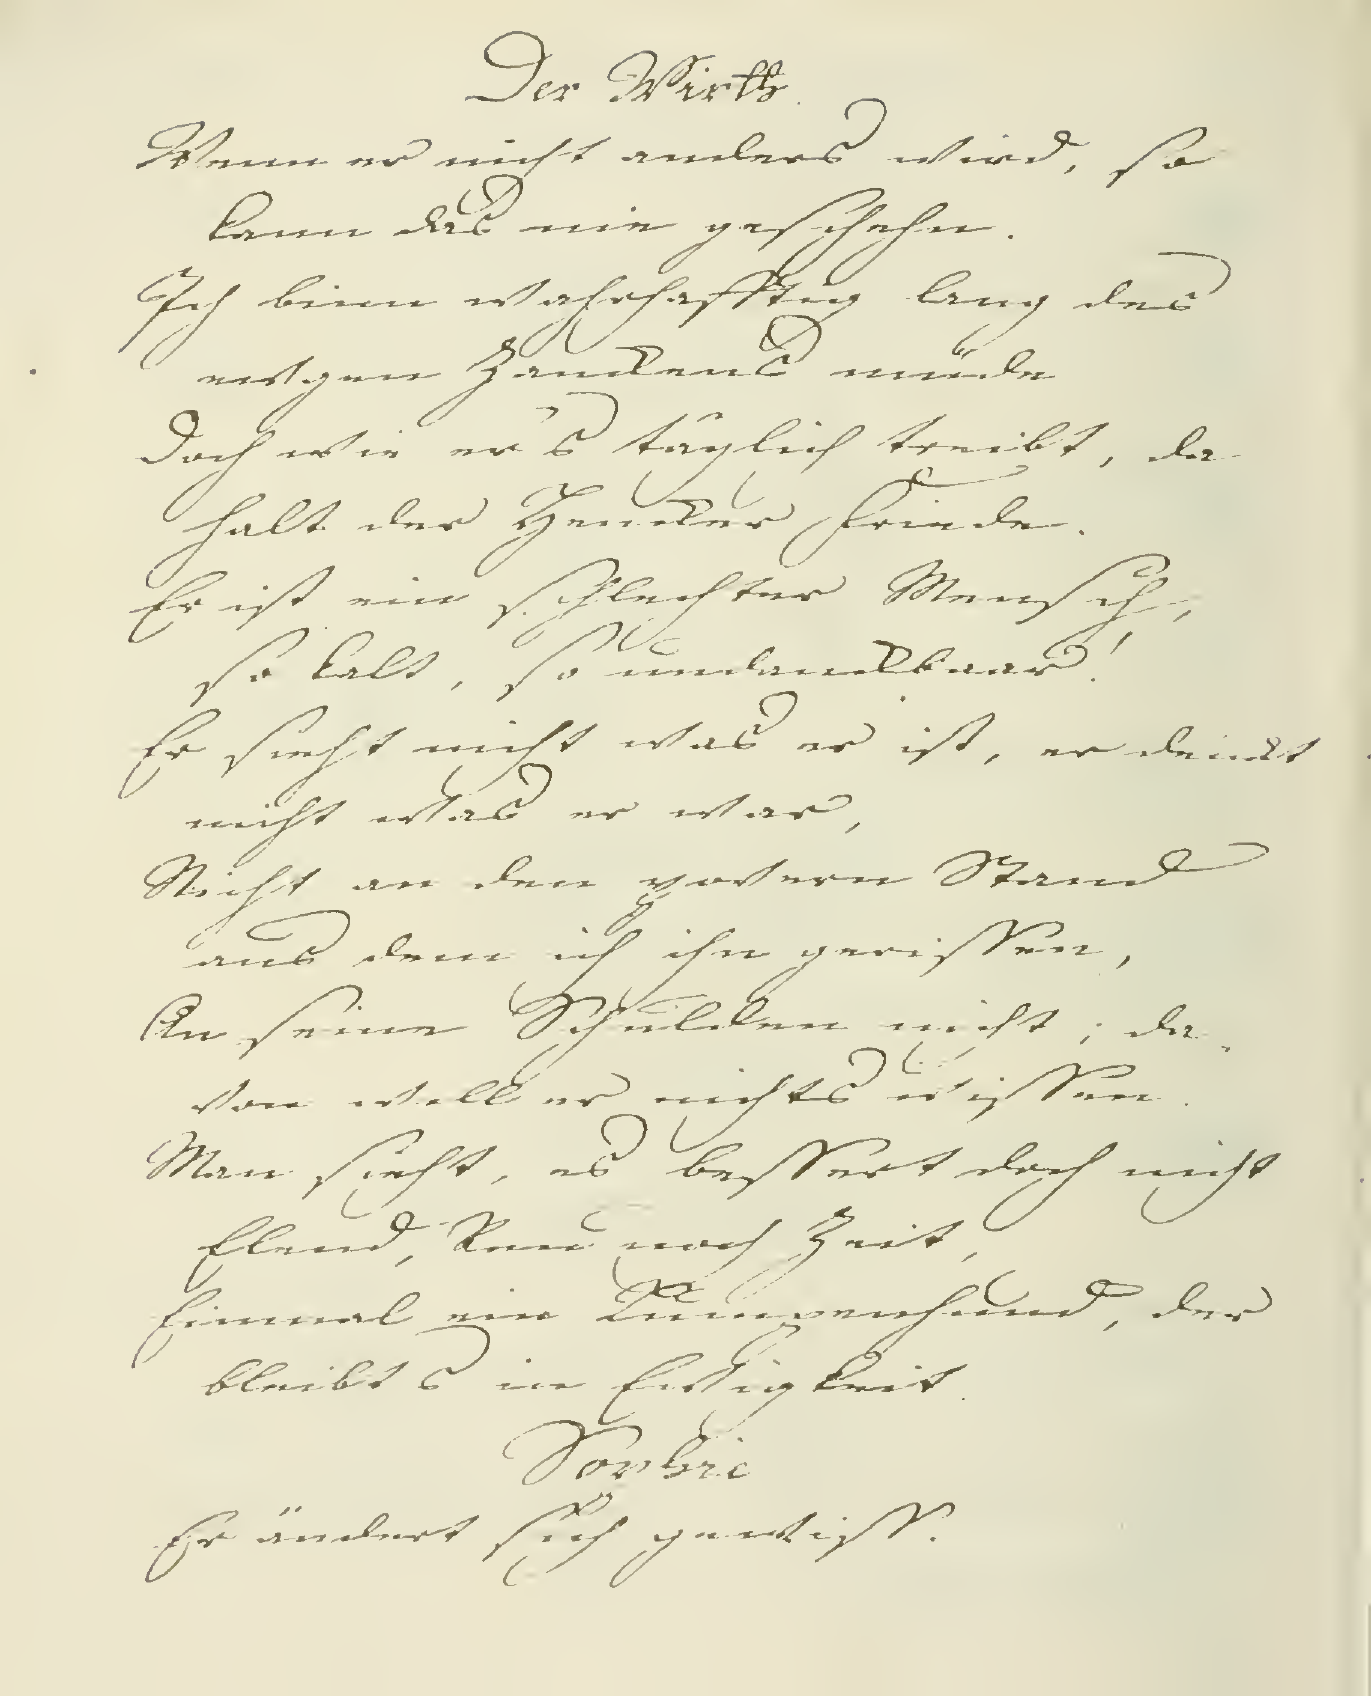 Der Wirth.
Wenn er nicht anders wird, so
kann das nie geschehn.
Ich binn wahrhafftig lang des
ewgen Zanckens müde
Doch wie er's täglich treibt, da
halt der Hencker Friede.
Er ist ein schlechter Mensch,
so kalt, so undanckbaar!
Er sieht nicht was er ist, er denckt
nicht was er war,
Nicht an den povern Stand
aus dem ich ihn gerissen,
An seine Schulden nicht; da
von will er nichts wissen.
Man sieht, es bessert doch nicht
Elend, Reu noch Zeit,
Einmal ein Lumpenhund, der
bleibts in Ewigkeit.
Sophie
Er ändert sich gewiss.